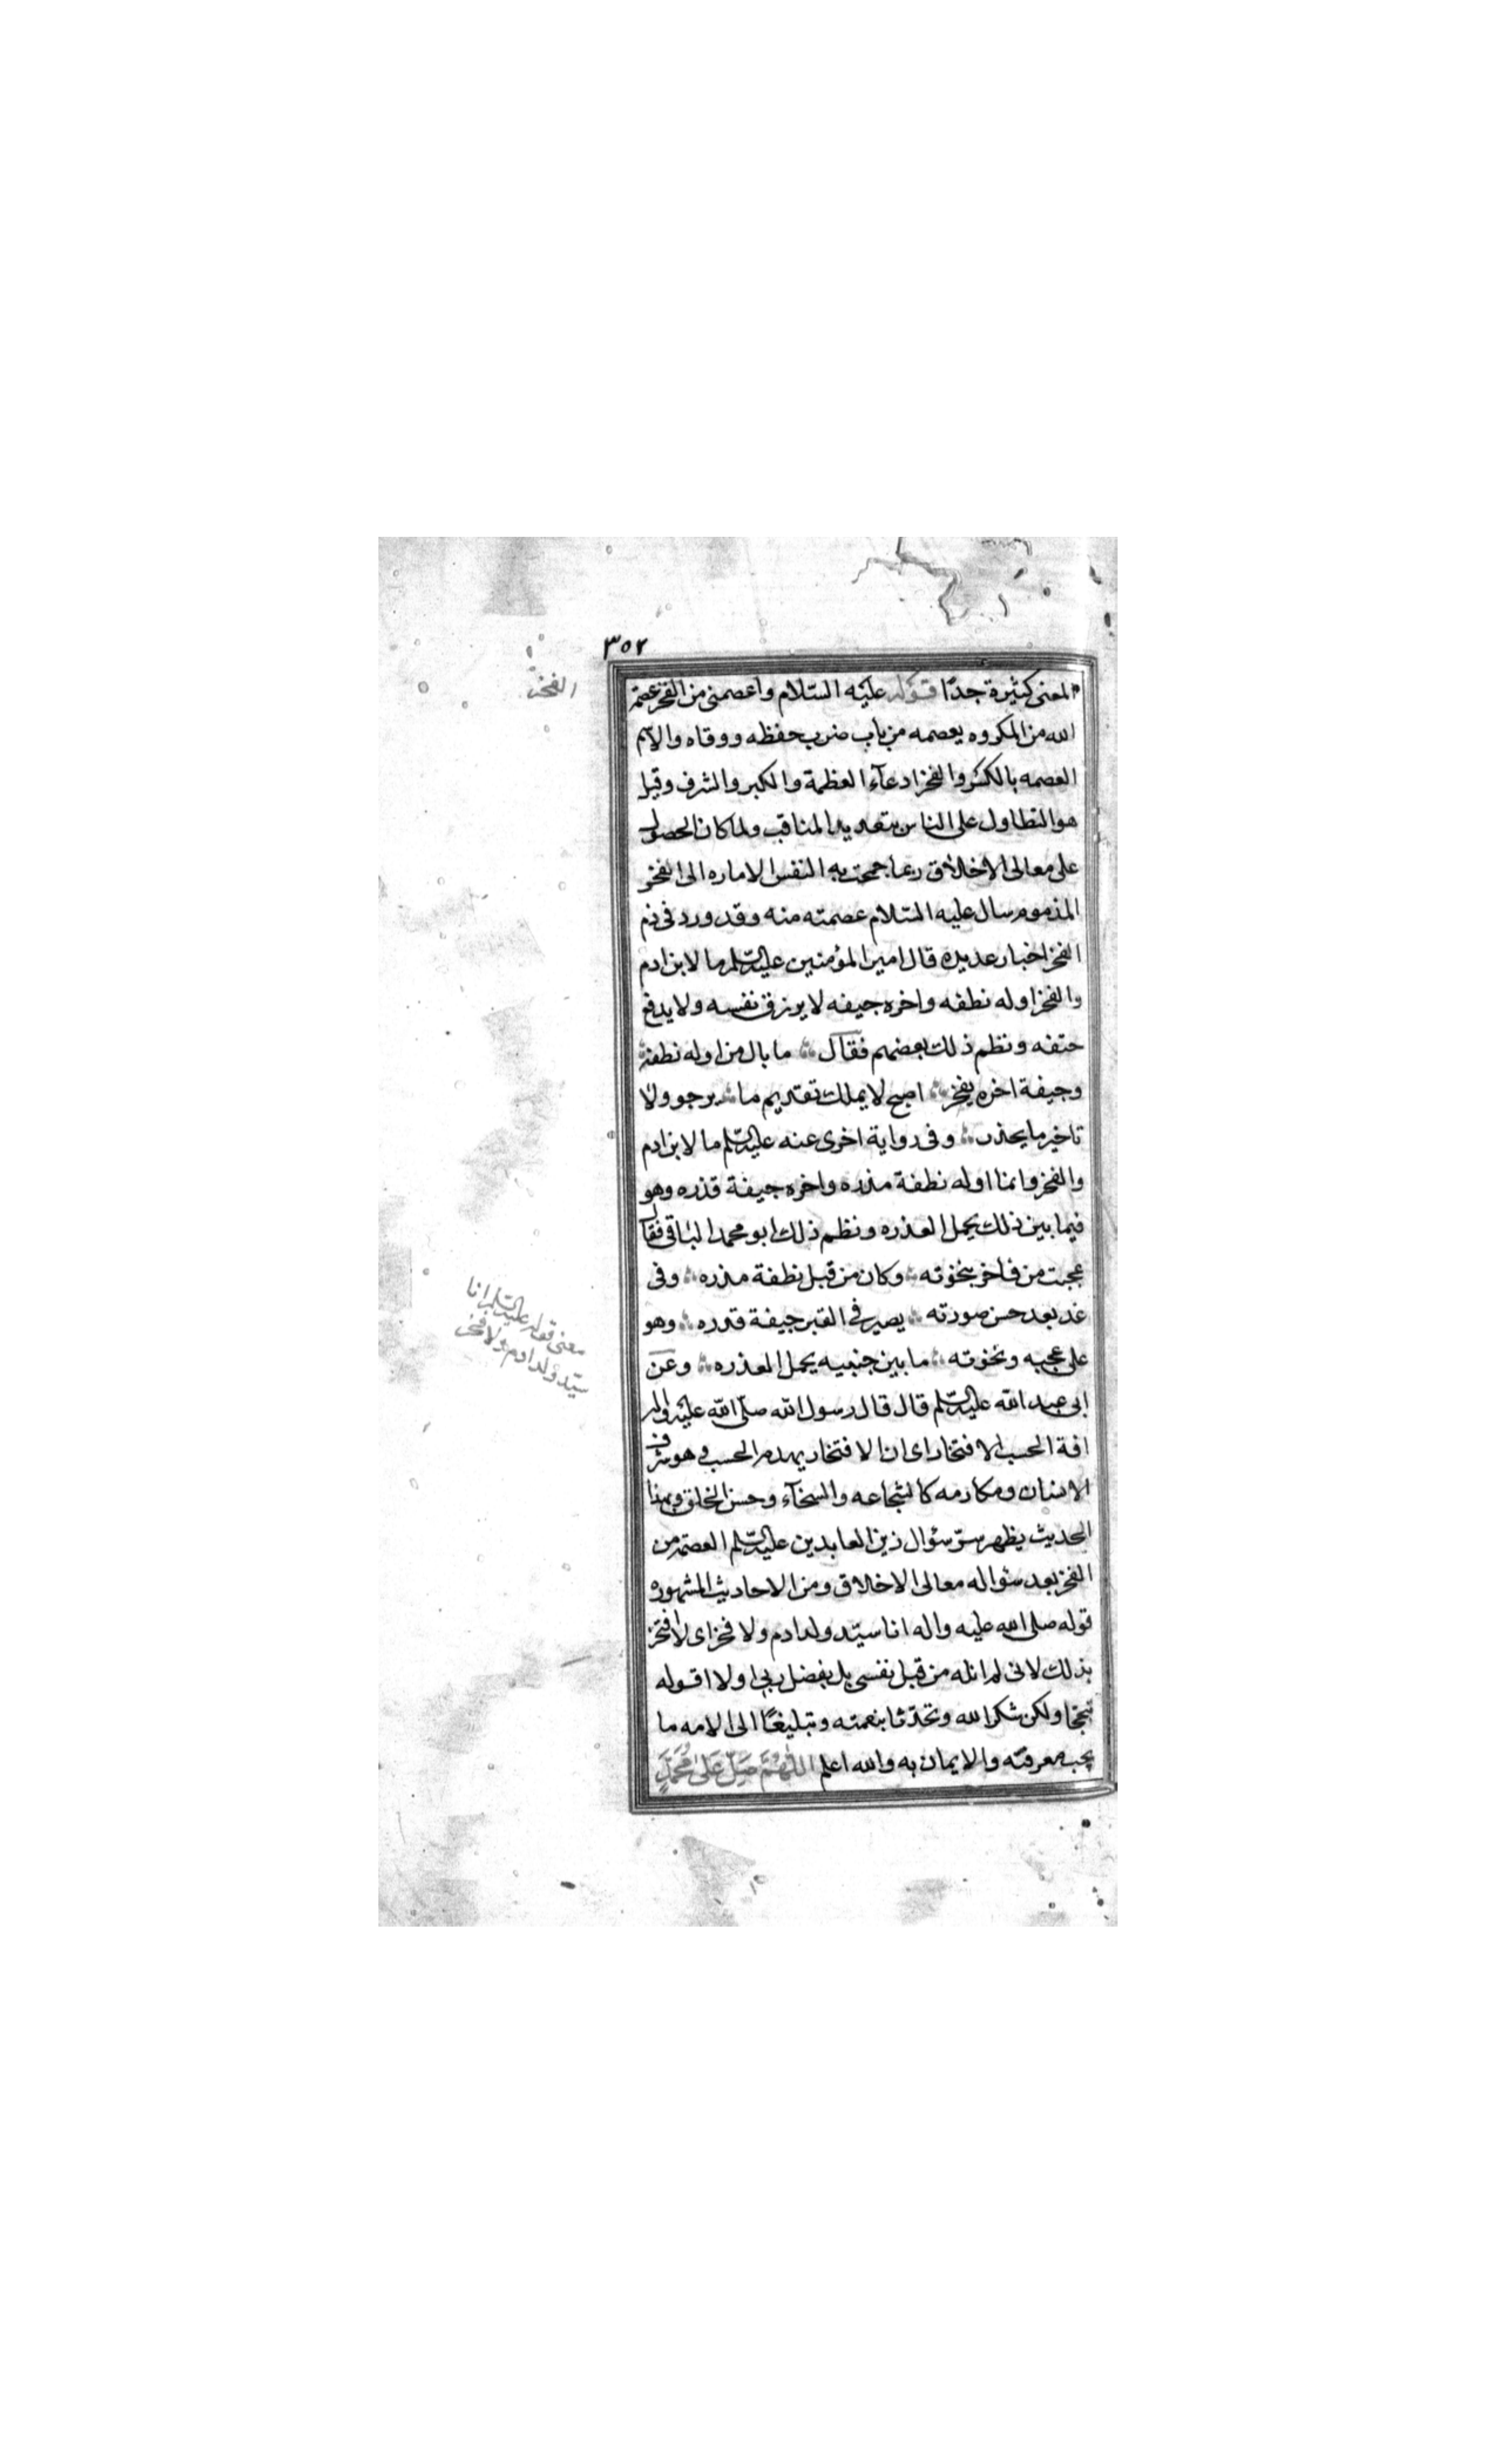 ٣٥٢
الفخر
المعنى كثيرة جدًا قوله عليه السّلام واعصمنى من الفخر عصمه
الله من المكروه يعصمه من باب ضرب حفظه ووقاه والاسم
العصمه بالكسر والفخر ادعآء العظمة والكبر والشرف وقيل
هو التطاول على الناس بتعديد المناقب ولما كان الحصول
على معالى الاخلاق ربما جمحت به النفس الاماره الى الفخر
المذموم سال عليه السّلام عصمته منه وقد ورد فى ذم
الفخر اخبار عديده قال امير المؤمنين عليه السّلم ما لابن ادم
والفخر اوله نطفه واخره جيفه لا يرزق نفسه ولا يدفع
حتفه ونظم ذلك بعضهم فقال ما بال من اوله نطفة
وجيفة اخره يفخر اصبح لا يملك تقديم ما يرجو ولا
تاخير ما يحذر وفى رواية اخرى عنه عليه السّلم ما لابن ادم
والفخر وانما اوله نطفة مذره واخره جيفة قذره وهو
فيما بين ذلك يحمل العذره ونظم ذلك ابو محمد الباقى فقال
عجبت من فاخر بنخوته وكان من قبل نطفة مذره وفى
غد بعد حسن صورته يصير فى القبر جيفة قذره وهو
على عجبه ونخوته ما بين جنبيه يحمل العذره وعن
ابى عبد الله عليه السّلم قال قال رسول الله صلّى الله عليه واله
افة الحسب الافتخار اى ان الافتخار يهدم الحسب وهو شرف
الانسان ومكارمه كالشجاعه والسخآء وحسن الخلق وبهذا
الحديث يظهر سرّ سؤال زين العابدين عليه السّلم العصمه من
الفخر بعد سؤاله معالى الاخلاق ومن الاحاديث المشهوره
قوله صلى الله عليه واله انا سيّد ولد ادم ولا فخر اى لا افتخر
بذلك لانى لم انله من قبل نفسى بل بفضل ربى او لا اقوله
تبجحا ولكن شكرا لله وتحدّثا بنعمته وتبليغًا الى الامه ما
يجب معرفته والايمان به والله اعلم اللّهُمَّ صَلِّ عَلى مُحَمَّدٍ
معنى قوله عليه السّلم انا
سيّد ولد ادم ولا فخر